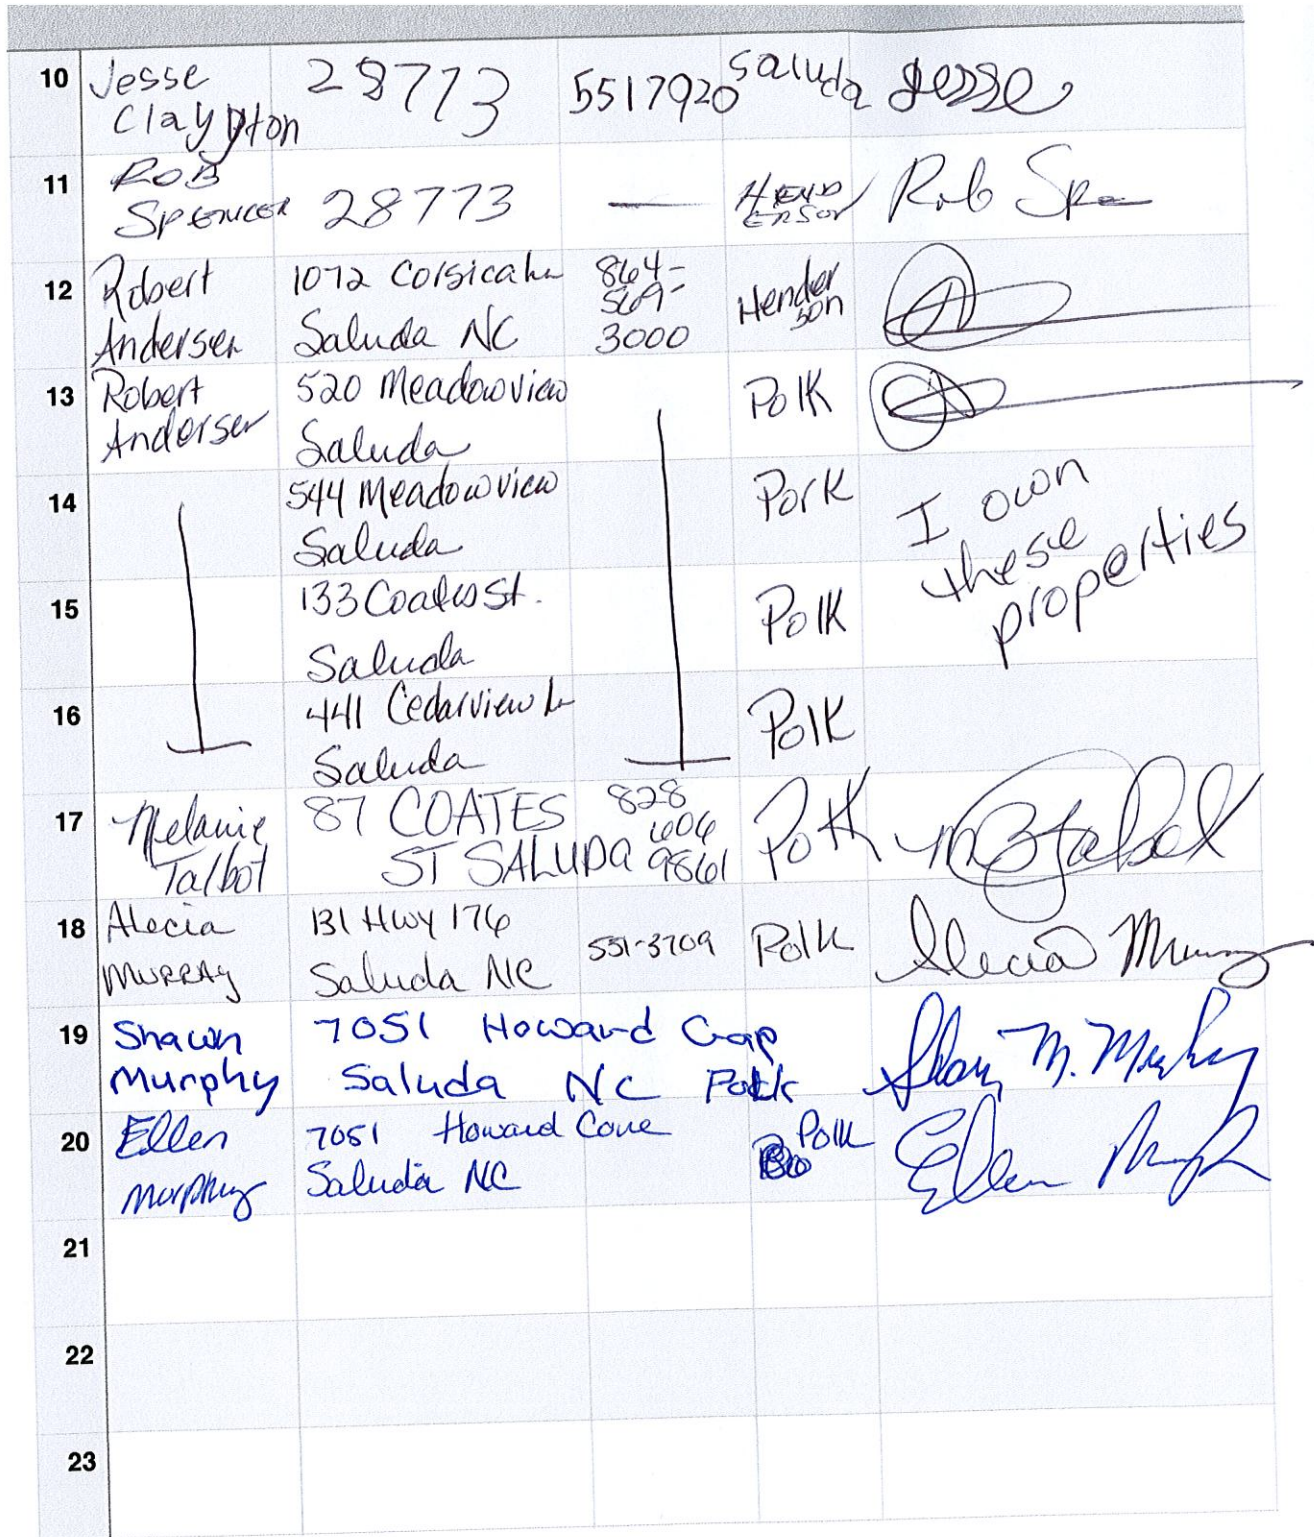 10 Jesse Claypton 28773 5517920 Saluda Jesse
11 ROB SPENCER 28773 — HENDERSON Rob Spe
12 Robert Andersen 1072 Corsica Ln Saluda NC 864-569-3000 Henderson
13 Robert Andersen 520 Meadowview Saluda Polk
14 544 Meadowview Saluda Pork I own these properties
15 133 Coates St. Saluda Polk
16 441 Cedarview Ln Saluda Polk
17 Melanie Talbot 87 COATES ST SALUDA 828 606 9861 Polk M B Talbot
18 Alecia MURRAY 131 Hwy 176 Saluda NC 551-3709 Polk Alecia Murray
19 Shawn Murphy 7051 Howard Gap Saluda NC Polk Shawn M. Murphy
20 Ellen Murphy 7051 Howard Cove Saluda NC Polk Ellen Murph
21
22
23